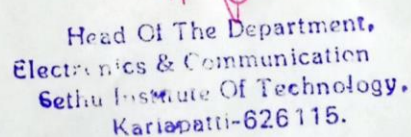 Head Of The Department,
Electronics & Communication
Sethu Institute Of Technology,
Kariapatti-626 115.